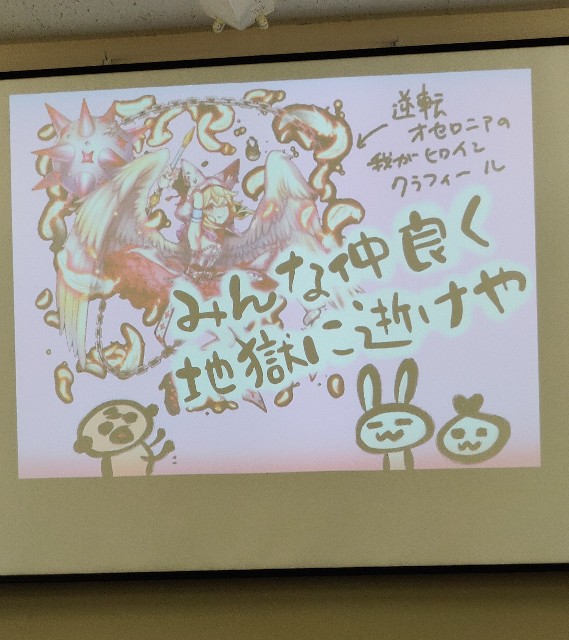 逆転
オセロニアの
我がヒロイン
クラフィール
みんな仲良く
地獄に逝けや